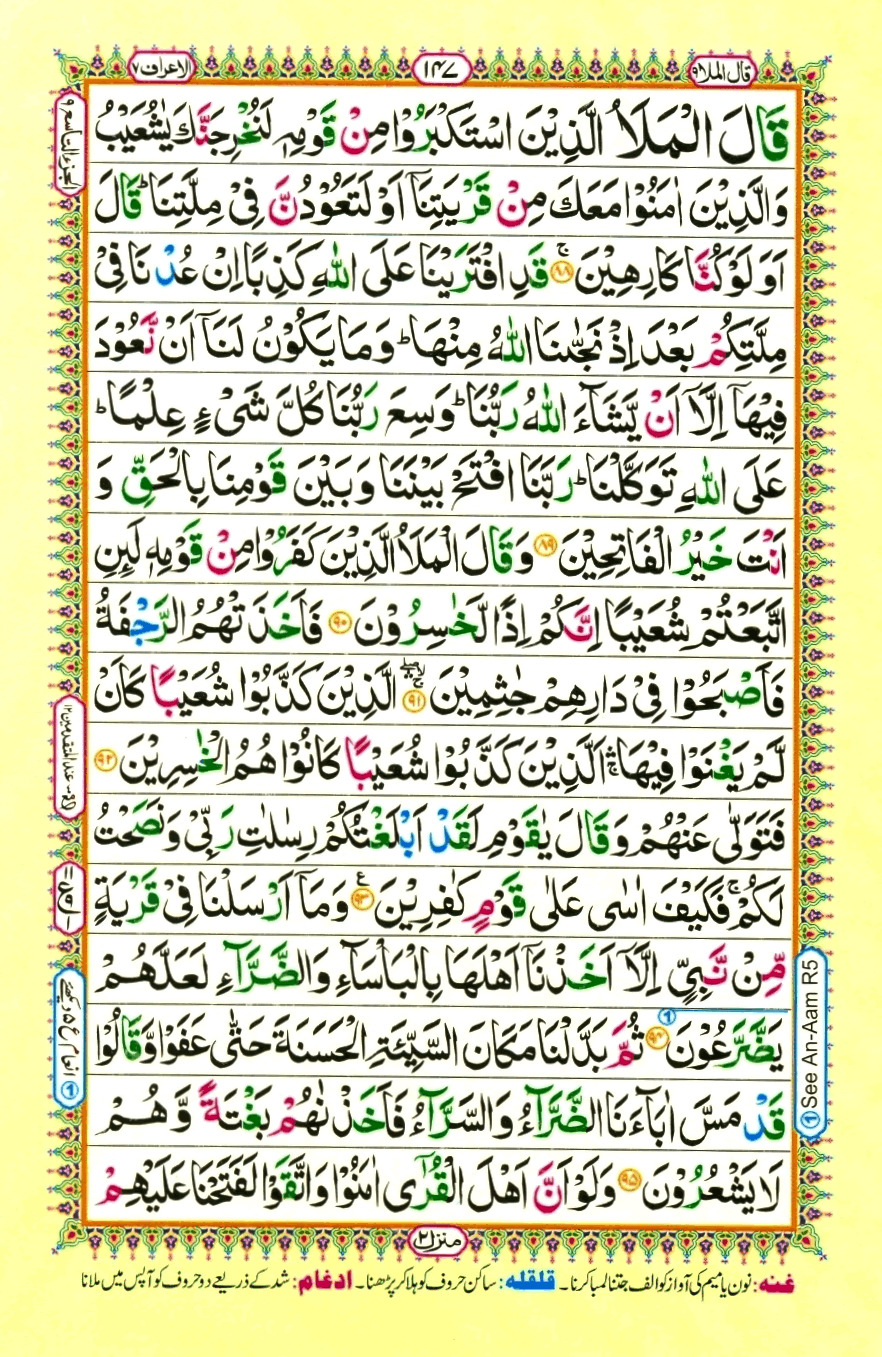 الاعراف ٧
١٤٧
قال الملا ٩
الجزء التاسع ٩
قَالَ الْمَلَاُ الَّذِيْنَ اسْتَكْبَرُوْا مِنْ قَوْمِهٖ لَنُخْرِجَنَّكَ يٰشُعَيْبُ
وَالَّذِيْنَ اٰمَنُوْا مَعَكَ مِنْ قَرْيَتِنَاۤ اَوْ لَتَعُوْدُنَّ فِىْ مِلَّتِنَا ؕ قَالَ
اَوَ لَوْ كُنَّا كَارِهِيْنَ ۚ ﴿۸۸﴾ قَدِ افْتَرَيْنَا عَلَى اللّٰهِ كَذِبًا اِنْ عُدْنَا فِىْ
مِلَّتِكُمْ بَعْدَ اِذْ نَجّٰىنَا اللّٰهُ مِنْهَا ؕ وَمَا يَكُوْنُ لَنَاۤ اَنْ نَّعُوْدَ
فِيْهَاۤ اِلَّاۤ اَنْ يَّشَآءَ اللّٰهُ رَبُّنَا ؕ وَسِعَ رَبُّنَا كُلَّ شَىْءٍ عِلْمًا ؕ
عَلَى اللّٰهِ تَوَكَّلْنَا ؕ رَبَّنَا افْتَحْ بَيْنَنَا وَبَيْنَ قَوْمِنَا بِالْحَقِّ وَ
اَنْتَ خَيْرُ الْفَاتِحِيْنَ ﴿۸۹﴾ وَقَالَ الْمَلَاُ الَّذِيْنَ كَفَرُوْا مِنْ قَوْمِهٖ لَئِنِ
اتَّبَعْتُمْ شُعَيْبًا اِنَّكُمْ اِذًا لَّخٰسِرُوْنَ ﴿۹۰﴾ فَاَخَذَتْهُمُ الرَّجْفَةُ
فَاَصْبَحُوْا فِىْ دَارِهِمْ جٰثِمِيْنَ ﴿۹۱﴾ الَّذِيْنَ كَذَّبُوْا شُعَيْبًا كَاَنْ
لَّمْ يَغْنَوْا فِيْهَا ۛۚ اَلَّذِيْنَ كَذَّبُوْا شُعَيْبًا كَانُوْا هُمُ الْخٰسِرِيْنَ ﴿۹۲﴾
فَتَوَلّٰى عَنْهُمْ وَقَالَ يٰقَوْمِ لَقَدْ اَبْلَغْتُكُمْ رِسٰلٰتِ رَبِّىْ وَنَصَحْتُ
لَكُمْ ۚ فَكَيْفَ اٰسٰى عَلٰى قَوْمٍ كٰفِرِيْنَ ﴿۹۳﴾ وَمَاۤ اَرْسَلْنَا فِىْ قَرْيَةٍ
مِّنْ نَّبِىٍّ اِلَّاۤ اَخَذْنَاۤ اَهْلَهَا بِالْبَاْسَآءِ وَالضَّرَّآءِ لَعَلَّهُمْ
يَضَّرَّعُوْنَ ﴿۹۴﴾ ① ثُمَّ بَدَّلْنَا مَكَانَ السَّيِّئَةِ الْحَسَنَةَ حَتّٰى عَفَوْا وَّقَالُوْا
قَدْ مَسَّ اٰبَآءَنَا الضَّرَّآءُ وَالسَّرَّآءُ فَاَخَذْنٰهُمْ بَغْتَةً وَّهُمْ
لَا يَشْعُرُوْنَ ﴿۹۵﴾ وَلَوْ اَنَّ اَهْلَ الْقُرٰٓى اٰمَنُوْا وَاتَّقَوْا لَفَتَحْنَا عَلَيْهِمْ
① انعام ع ۵ دیکھئے
① See An-Aam R5
منزل ۲
غنه: نون یا میم کی آواز کو الف جتنا لمبا کرنا۔ قلقله: ساکن حروف کو ہلا کر پڑھنا۔ ادغام: شد کے ذریعے دو حروف کو آپس میں ملانا